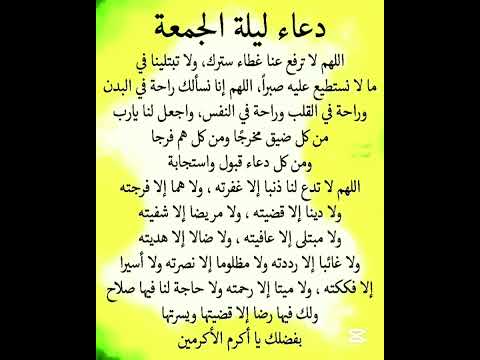 دعاء ليلة الجمعة
اللهم لا ترفع عنا غطاء سترك، ولا تبتلينا في
ما لا نستطيع عليه صبراً، اللهم إنا نسألك راحة في البدن
وراحة في القلب وراحة في النفس، واجعل لنا يارب
من كل ضيق مخرجًا ومن كل هم فرجا
ومن كل دعاء قبول واستجابة
اللهم لا تدع لنا ذنبا إلا غفرته ، ولا هما إلا فرجته
ولا دينا إلا قضيته ، ولا مريضا إلا شفيته
ولا مبتلى إلا عافيته ، ولا ضالا إلا هديته
ولا غائبا إلا رددته ولا مظلوما إلا نصرته ولا أسيرا
إلا فككته ، ولا ميتا إلا رحمته ولا حاجة لنا فيها صلاح
ولك فيها رضا إلا قضيتها ويسرتها
بفضلك يا أكرم الأكرمين